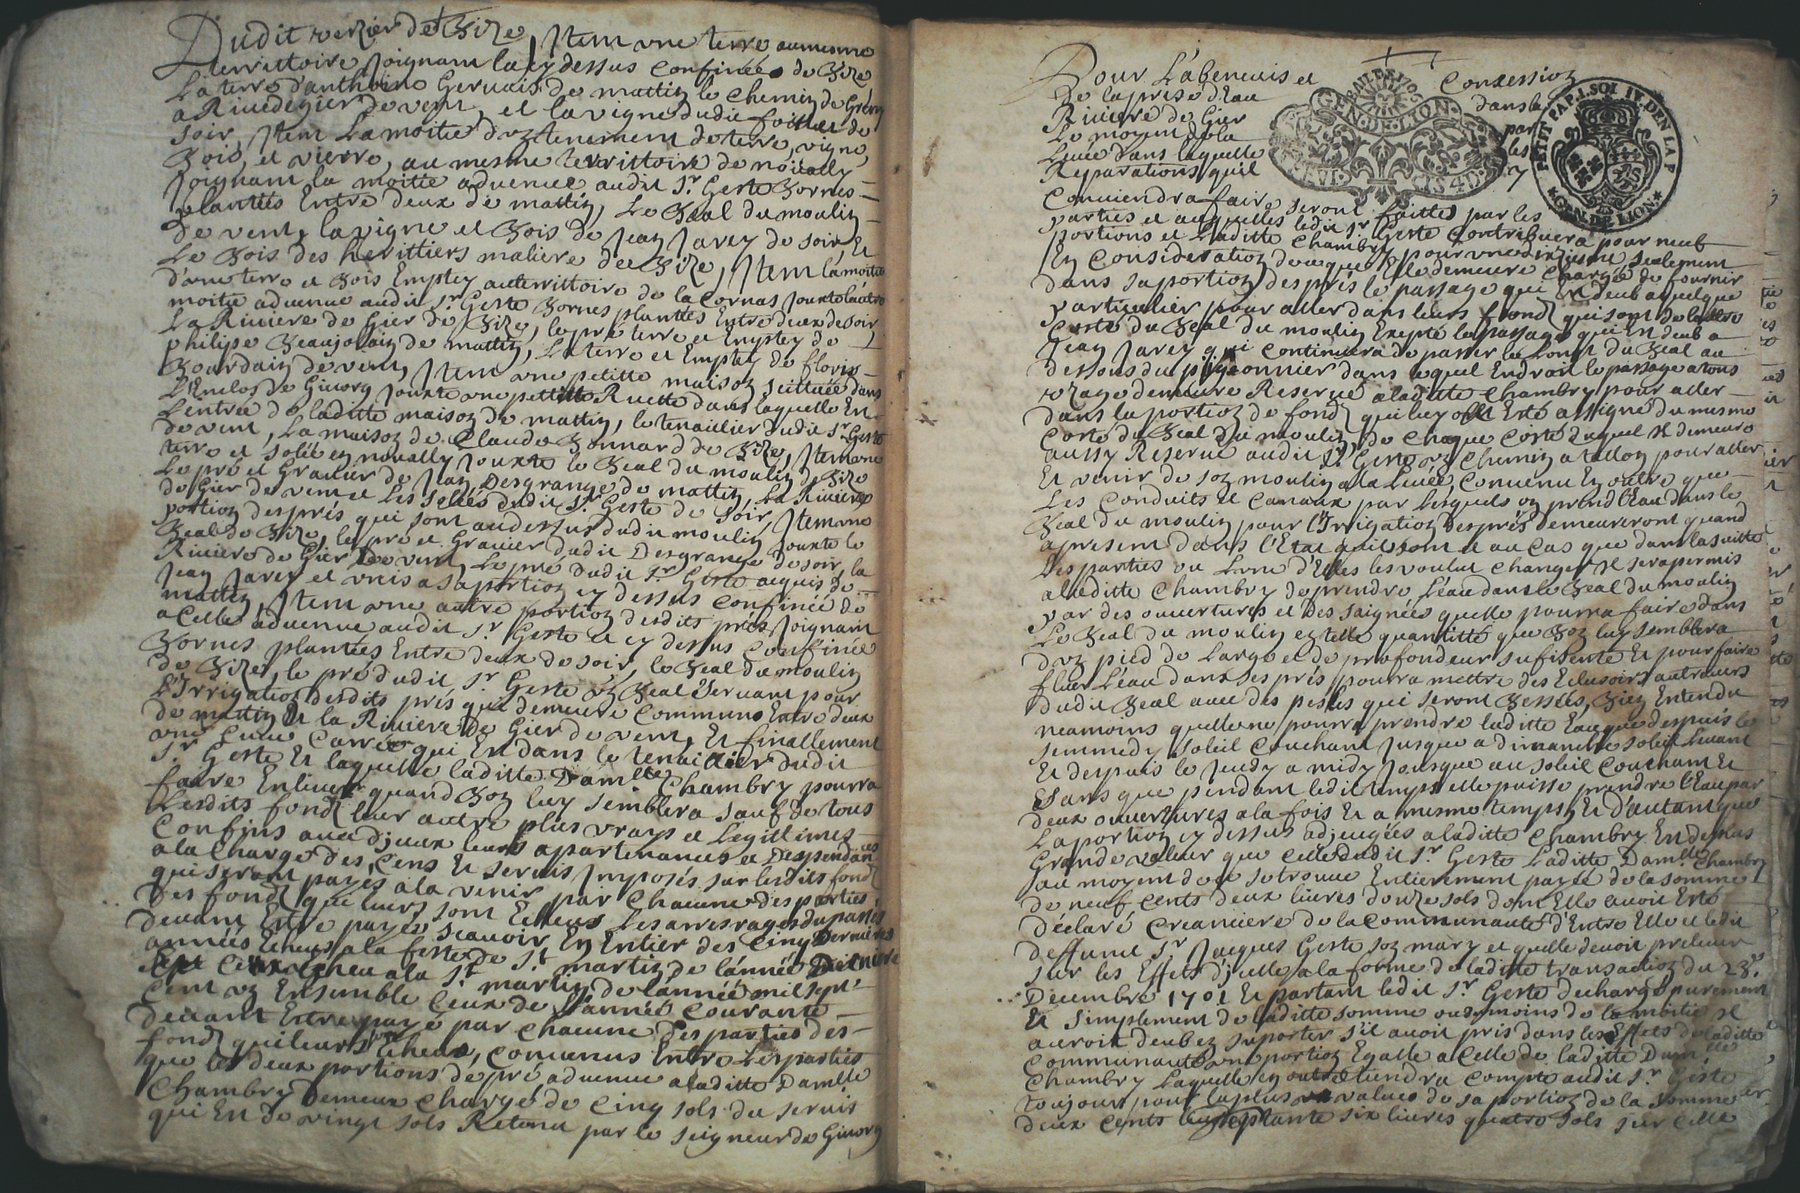 Dudit verzier de Bize, Jtem vne terre aumesme
territtoire Joignant la cy dessus confinée de Bize
La terre d'anthoine Gervais de mattin le chemin de
a Rivedegier de vent, et la vigne dudit
soir, Jtem La moitié d'vn tenement de terre, vigne,
Bois, et vierre, au mesme territtoire de
Joignant la moitié advenue audit Sr. Geste Bornes
plantées Entre deux de mattin, Le Beal du moulin
de vent, la vigne et Bois de Jean Jarey de soir Et
Le Bois des herittiers maliere de Bize, Jtem la moitié
d'vne terre et Bois Empley au territtoire de la Cornas Jouxte lautre
moitié advenue audit Sr. Geste Bornes plantées Entre deux de soir
La Riviere de Gier de Bize, le pré terre et Empley de
philipe Beaujolain de mattin, La terre et Empley de
Bourdain de vent, Jtem vne petitte maison scittuée dans
L'Enclos de Givors Jouxte vne petitte Ruette dans laquelle En
L'entrée de laditte maison de mattin, le tenaillier dudit Sr. Geste
de vent, La maison de Claude Bonnard de Bize, Jtem vne
terre et Jouxte le Beal du moulin de Bize
Le pré et Gravier de Jean Desgrange de mattin, La Riviere
de Gier de vent et Les dudit Sr. Geste de soir, Jtem vne
portion des prés qui sont au dessus dudit moulin Jouxte le
Beal de Bize, le pré et Gravier dudit Desgrange de soir, la
Riviere de Gier de vent, Le pré dudit Sr. Geste acquis de
Jean Jarey et vnis a sa portion cy dessus confinée de
mattin, Jtem vne autre portion desdits prés Joignant
a Celle advenue audit Sr. Geste et cy dessus confinée
Bornes plantées Entre deux de soir, le Beal du moulin
de Bize, le pré dudit Sr. Geste vn Beal servant pour
L'Irrigation desdits prés qui demeure commune Entre deux
de mattin Et la Riviere de Gier de vent, Et finallement
vne qui En dans le tenaillier dudit
Sr. Geste Et laquelle laditte Damlle. Chambry pourra
faire Enlever quand Bon luy semblera sauf de tous
Lesdits fonds leur autre plus vrays et Legittimes
Confins avec Jceux leurs apartenances et Despendances
a la charge des Cens Et servis Jmposés sur lesdits fonds
qui seront payés a la venir par chacune des parties
Des fonds qui leurs sont Echeus Les arrerages du passé
devant Entre payés scavoir En Entier des cinq dernieres
années Echeus a la feste de St. martin de lannée Derniere
Ceux Echeu a la St. martin de lannée mil sept
Cent vn Ensemble Ceux de l'année courante
devant Entre payé par chacune Des parties des
fonds qui leurs Echeus, convenus Entre Les parties
que les deux portions de pré advenue a laditte Damlle.
Chambry Demeure chargé de Cinq sols du servis
qui En de vingt sols Retenu par le seigneur de Givors
Pour L'abenevis et Concession
De la prise d'Eau dans la
Riviere de Gier par
Le moyen de la les
Levée dans laquelle
Reparations quil y
Conviendra faire seront faittes par les
parties et auxquelles ledit Sr. Geste Contribuera pour neuf
portions et Laditte Chambry pour vne dixiesme seulement
En Consideration de ce qu'Elle demeure chargée de fournir
dans sa portion des prés le passage qui Est deub a quelque
particulier pour aller dans leurs fonds qui sont de lautre
Costé du Beal du moulin Exepté le passage qui En deub a
Jean Jarey qui continuera de passer le Long du Beal au
dessous du pigeonnier dans lequel Endroit le passage a tous
vzage demeure Reservé a laditte Chambry pour aller
dans la portion de fonds qui luy a Esté assigné du mesme
Costé du Beal du moulin, de chaque costé duquel Il demeure
aussy Reservé audit Sr. Geste vn chemin a tallon pour aller
Et venir de son moulin a la Levée, Convenu En outre que
Les Conduits Et Canaux par Lesquels on prend l'Eau dans le
Beal du moulin pour l'Irrigation des prés demeureront quand
a present dans l'Etat quils sont et au cas que dans la suitte
Les parties ou L'une d'Elles les voulut changer Il sera permis
a laditte Chambry de prendre L'eau dans le Beal du moulin
par des ouvertures et des saignées quelle pourra faire dans
Le Beal du moulin en telle quantitté que Bon luy semblera
d'vn pied de Large et de profondeur sufisente Et pour faire
fluer L'eau dans ses prés pourra mettre des Eclusoirs au travers
dudit Beal avec des pesles qui seront Bessées, Bien Entendu
neamoins quelle ne pourra prendre laditte Eau que despuis le
semmedy soleil Couchant Jusque a dimanche soleil Levant
Et despuis le Jeudy a midy Jousque au soleil Couchant Et
Sans que pendant ledit temps elle puisse prendre l'Eau par
deux ouvertures a la fois Et a mesme temps, Et D'autant que
La portion cy dessus adjugées a laditte Chambry En de plus
Grande valleur que celle dudit Sr. Geste Laditte Damlle. Chambry
au moyent de ce se trouve Entierement payée de la somme
de neuf cents deux livres douze sols dont Elle avoit Esté
déclaré Creanciere de la communauté d'Entre Elle et ledit
deffunt Sr. Jacques Geste son mary et quelle devoit prelever
sur les Effets d'jcelle a la forme de laditte transaction du 23e.
Decembre 1701 Et partant ledit Sr. Geste dechargé purement
Et simplement de laditte somme ou du moins de la moitié Il
auroit deub en suporter s'il avoit pris dans les Effets de laditte
Communauté vne portion Egalle a Celle de laditte Damlle.
Chambry Laquelle En outre tiendra Compte audit Sr. Geste
toujour pour la plus value de sa portion de la somme de
deux cents septante six livres quatro sols sur Celle
GEN. DE LION
PETIT PAP. I. SOL IV. DEN LA P
GEN. DE LION